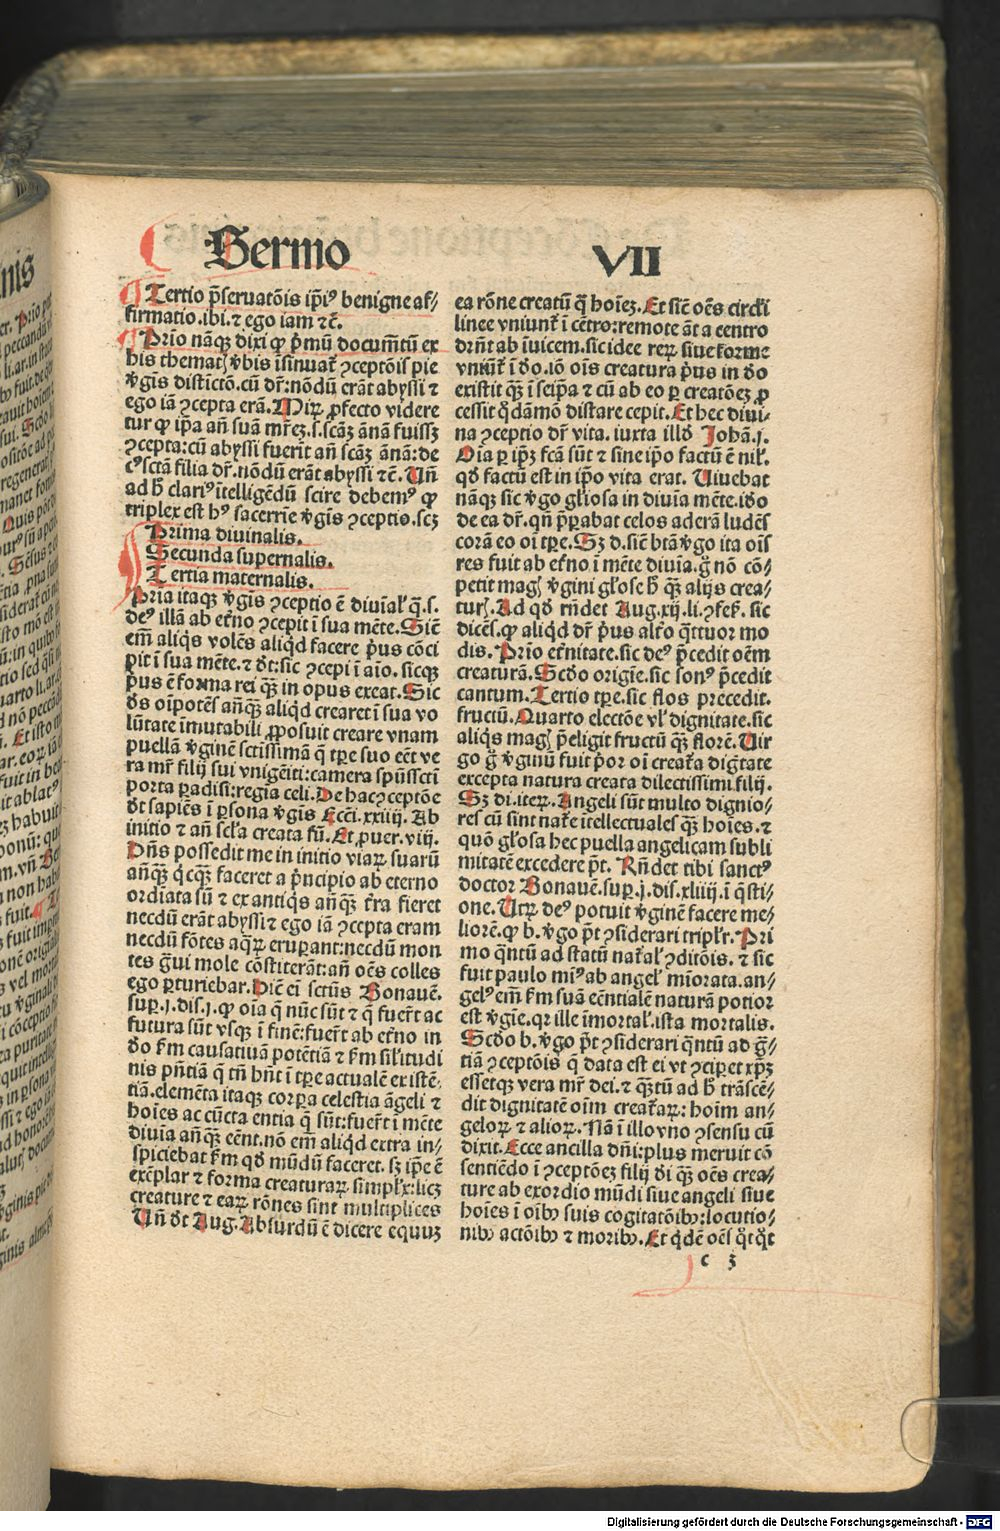 Sermo VII
Tertio p̄seruatōis ip̄iꝰ benigne af-
firmatio.ibi.⁊ ego iam ⁊c̄.
Prīo nāqꝫ dixi ꝙ p̄mū documētū ex
his thematꝭ v̄bis īsinuat̄ ꝯceptōis pie
v̄gīs distictō.cū dr̄:nōdū erāt abyssi ⁊
ego iā ꝯcepta erā.Miꝝ ꝓfecto videre
tur ꝙ ip̄a añ suā mr̄eꝫ.s.scāꝫ ānā fuissꝫ
ꝯcepta:cū abyssi fuerīt añ scāꝫ ānā:de
cꝰ sctā filia dr̄.nōdū erāt abyssi ⁊c̄.Uñ
ad h̄ clariꝰ ītelligēdū scire debemꝰ ꝙ
triplex est hꝰ sacerrīe v̄gīs ꝯceptio.scꝫ
Prima diuinalis.
Secunda supernalis.
Tertia maternalis.
Pria itaqꝫ v̄gīs ꝯceptio ē diuīal̓ q̄.s.
deꝰ illā ab et̓no ꝯcepit ī sua mēte.Siē
em̄ aliqͥs volēs aliqͥd facere pͥus cōci
pit ī sua mēte.⁊ d̄t:sic ꝯcepi ī aīo.sicqꝫ
pͥus ē forma rei qͣꝫ in opus exeat.Sic
d̄s oīpotēs añqͣꝫ aliqͥd crearet ī sua vo
lūtate īmutabili ꝓposuit creare vnam
puellā v̄ginē sctissimā q̄ tꝑe suo eēt ve
ra mr̄ filij sui vnigēiti:camera spūssctī
porta ꝑadisi:regia celi.De hac ꝯceptōe
d̄t sapiēs ī ꝑsona v̄gīs Ecc̄i.xxiiij.Ab
initio ⁊ añ scl̓a creata sū.Et ꝓuer.viij.
Dn̄s possedit me in initio viaꝝ suarū
añqͣꝫ qͥcqͣꝫ faceret a pͥncipio ab eterno
ordiata sū ⁊ ex antiqͥs añqͣꝫ t̓ra fieret
necdū erāt abyssi ⁊ ego iā ꝯcepta eram
necdū fōtes aqͣꝝ eruperant:necdū mon
tes gͣui mole cōstiterāt:añ oēs colles
ego ꝑturiebar.Dic̄ ei sctūs Bonauē.
suꝑ.j.dis.j.ꝙ oīa q̄ nūc sūt ⁊ q̄ fuer̄t ac
futura sūt vsqꝫ ī finē:fuer̄t ab et̓no in
d̄o s̓m causatiuā potētiā ⁊ s̓m sil̓itudi
nis p̄ntiā q̄ tn̄ hn̄t ī tꝑe actualē existē
tiā.elemēta itaqꝫ corꝑa celestia āgeli ⁊
hoīes ac cūcta entia q̄ sūt:fuer̄t ī mēte
diuīa añqͣꝫ eēnt.nō em̄ aliqͥd extra in-
spiciebat s̓m qd̓ mūdū faceret.sꝫ ip̄e ē
exēplar ⁊ forma creaturaꝝ simpl̓r:licꝫ
creature ⁊ eaꝝ rōnes sint multiplices
Uñ d̄t Aug.Absurdū ē dicere equuꝫ
ea rōne creatū q̄ hoīeꝫ.Et sic̄ oēs circl̓i
linee vniunt̄ ī cētro:remote āt a centro
dr̄nt ab īuicem.sic idee reꝝ siue forme
vniūt̄ ī d̄o.iō oīs creatura pͥus in d̄o
existit qͣꝫ ī seip̄a ⁊ cū ab eo ꝑ creatōeꝫ ꝓ
cessit qͥdāmō distare cepit.Et hec diui-
na ꝯceptio dr̄ vita.iuxta illd̓ Johā.j.
Oīa ꝑ ip̄ꝫ fcā sūt ⁊ sine ip̄o factū ē nil̓.
qd̓ factū est in ip̄o vita erat.Uiuebat
nāqꝫ sic v̄go gl̓iosa in diuīa mēte.id̓o
de ea dr̄.qn̄ p̄ꝑabat celos aderā ludēs
corā eo oī tꝑe.Sꝫ d.sic̄ btā v̄go ita oīs
res fuit ab et̓no ī mēte diuīa.gͦ nō cō-
petit magꝭ v̄gini gl̓ose h̄ qͣꝫ alijs crea-
turꝭ.Ad qd̓ rn̄det Aug.xij.li.ꝯfes̓.sic
dicēs.ꝙ aliqͥd dr̄ pͥus alt̓o qͣttuor mo
dis.Prīo et̓nitate.sic deꝰ p̄cedit oēm
creaturā.Scd̓o origīe.sic fonꝰ p̄cedit
cantum.Tertio tꝑe.sic flos precedit.
fructū.Quarto electōe vl̓ dignitate.sic
aliqͥs magꝭ p̄eligit fructū qͣꝫ florē.Uir
go gͦ v̄ginū fuit pͥor oī creat̓a digͥtate
excepta natura creata dilectissimi filij.
Sꝫ di.iteꝝ.Angeli sūt multo dignio-
res cū sint nat̓e ītellectuales qͣꝫ hoīes.⁊
quō gl̓osa hec puella angelicam subli
mitatē excedere p̄t. Rn̄det tibi sanctꝰ
doctor Bonauē.suꝑ.j.dis.xliiij.ī qͣsti-
one.Utꝝ deꝰ potuit v̄ginē facere me-
liorē.ꝙ b.v̄go p̄t ꝯsiderari tripl̓r.Pri
mo qͣntū ad statū nat̓al̓ ꝯditōis. ⁊ sic
fuit paulo miꝰ ab angel̓ mīorata.an-
gelꝰ em̄ s̓m suā eēntialē naturā potior
est v̄gīe.qꝛ ille īmortal̓.ista mortalis.
Scd̓o b.v̄go p̄t ꝯsiderari qͣntū ad gͣ-
tiā ꝯceptōis q̄ data est ei vt ꝯciꝑet xp̄ꝫ
essetqꝫ vera mr̄ dei.⁊ qͣꝫtū ad h̄ trāscē-
dit dignitatē oīm creat̓aꝝ:hoīm an-
geloꝝ ⁊ alioꝝ.Nā ī illo vno ꝯsensu cū
dixit.Ecce ancilla dn̄i:plus meruit cō
sentiēdo ī ꝯceptōeꝫ filij di qͣꝫ oēs crea-
ture ab exordio mūdi siue angeli siue
hoīes ī oībꝰ suis cogitatōibꝰ:locutio-
nibꝰ actōibꝰ ⁊ moribꝰ.Et qͥdē oēs qͥtqͥt
c 3
Digitalisierung gefördert durch die Deutsche Forschungsgemeinschaft - DFG